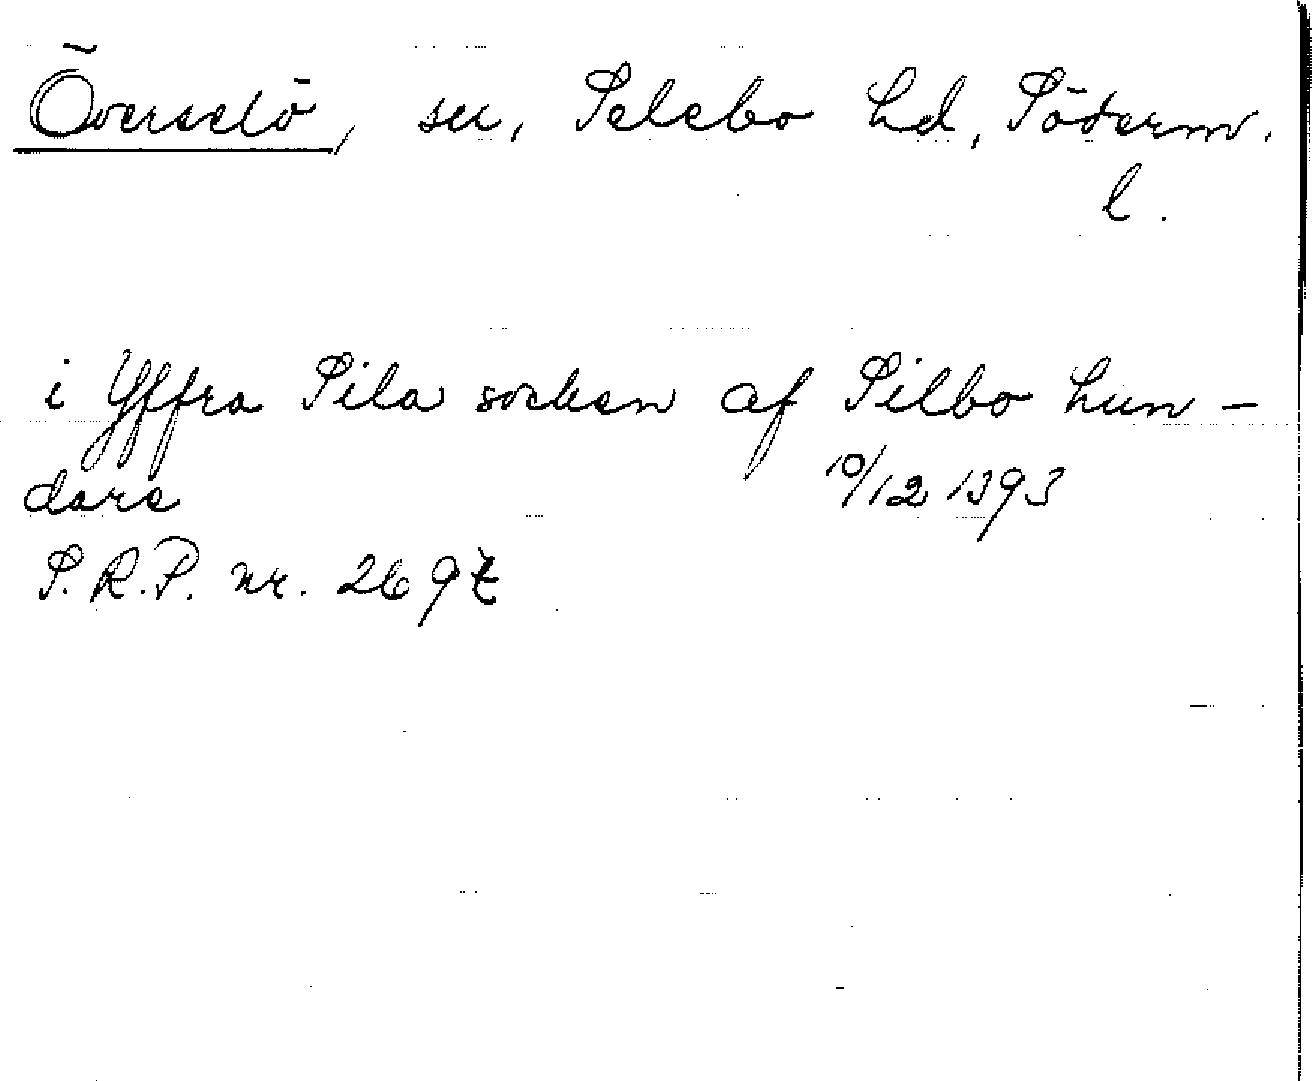 Överselö, sn, Selebo hd, Söderm.
l.
i Yffra Sila socken af Silbo hun-
dare 10/12 1393
S.R.P. nr. 2697